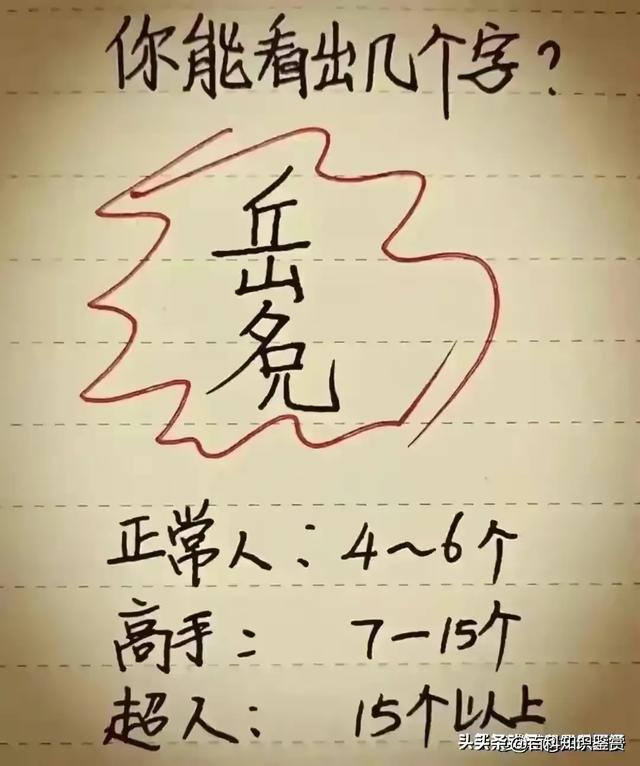 你能看出几个字？
岳
名兄
正常人：4～6个
高手：7—15个
超人：15个以上
头条@百科知识鉴赏